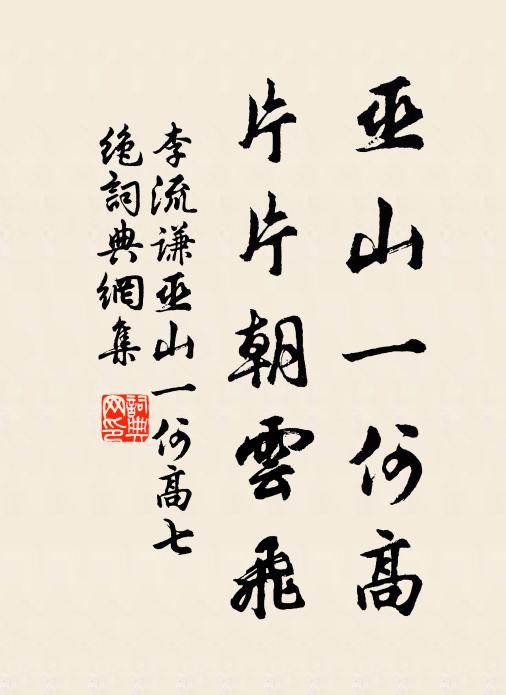 巫山一何高
片片朝雲飛
李流謙巫山一何高七
絶詞典網集
詞典
网印